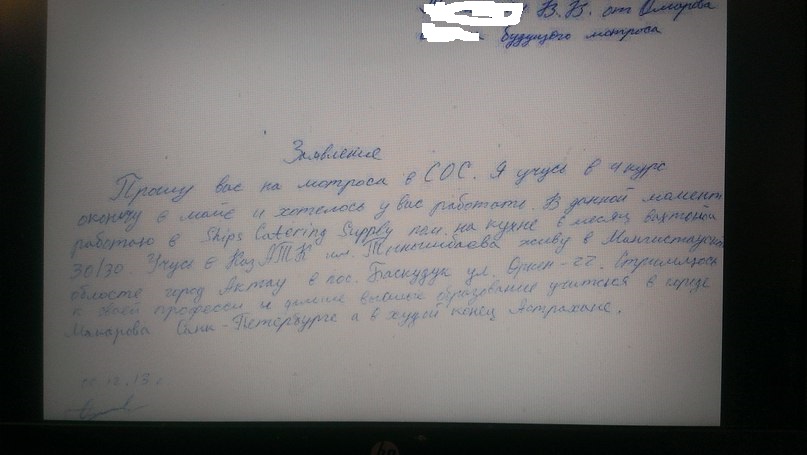 В.К. от Омарова
будущего матроса
Заявление
Прошу вас на матроса в СОС. Я учусь в 4 курс
окончу в майе и хотелось у вас работать. В данной момент
работаю в Ships Catering Supply пом. на кухне в месяц вахтовой
30/30. Учусь в КазАТК им. живу в Мангистауской
областе город Актау в пос. Баскудук ул. Оркен-22. Стримлюсь
к своей професси и дальше высшое образвание учится в городе
Макарова Санк-Петербурге а в худой конец Астрахане.
hp